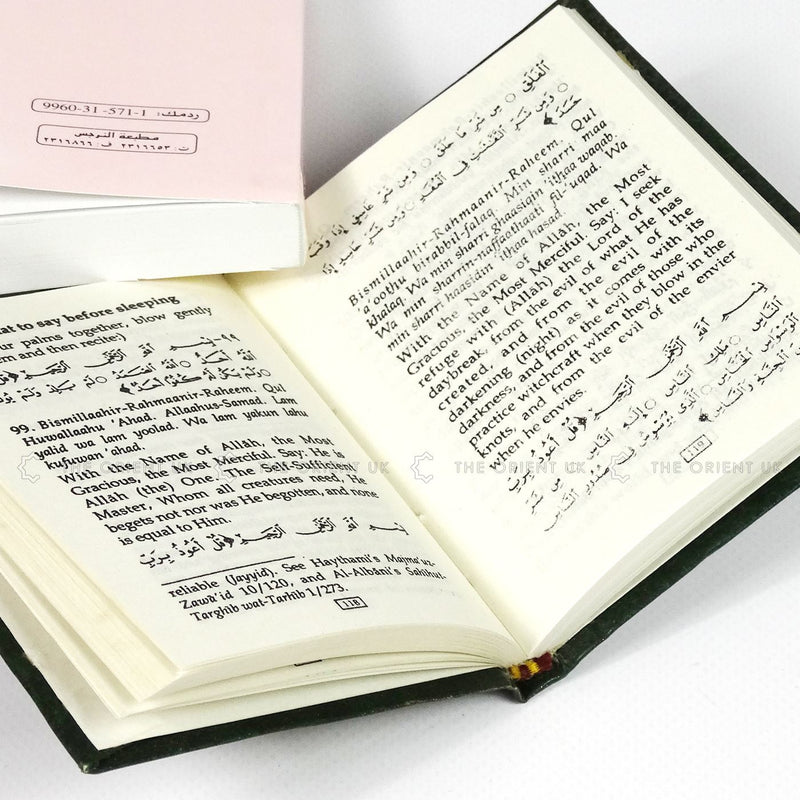 ردمك: 1-571-31-9960
مطبعة النرجس
ت: ٢٣١٦٦٥٣ ف: ٢٣١٦٨٦٦
at to say before sleeping
ur palms together, blow gently
em and then recite)
٩٩- بِسْمِ اللهِ الرَّحْمَنِ الرَّحِيمِ
99. Bismillaahir-Rahmaanir-Raheem. Qul
Huwallaahu 'Ahad. Allaahus-Samad. Lam
yalid wa lam yoolad. Wa lam yakun lahu
kufuwan 'ahad.
With the Name of Allâh, the Most
Gracious, the Most Merciful. Say: He is
Allâh (the) One. The Self-Sufficient
Master, Whom all creatures need, He
begets not nor was He begotten, and none
is equal to Him.
بِسْمِ اللهِ الرَّحْمَنِ الرَّحِيمِ ﴿قُلْ أَعُوذُ بِرَبِّ
reliable (Jayyid). See Haythami's Majma'uz-
Zawa'id 10/120, and Al-Albâni's Sahihut-
Targhib wat-Tarhib 1/273.
118
الْفَلَقِ
مِن شَرِّ مَا خَلَقَ
وَمِن شَرِّ غَاسِقٍ إِذَا وَقَبَ
وَمِن شَرِّ النَّفَّاثَاتِ فِي الْعُقَدِ
Bismillaahir-Rahmaanir-Raheem. Qul
'a'oothu birabbil-falaq. Min sharri maa
khalaq. Wa min sharri ghaasiqin 'ithaa waqab.
Wa min sharrin-naffaathaati fil-'uqad. Wa
min sharri haasidin 'ithaa hasad.
With the Name of Allâh, the Most
Gracious, the Most Merciful. Say: I seek
refuge with (Allâh) the Lord of the
daybreak, from the evil of what He has
created, and from the evil of the
darkening (night) as it comes with its
darkness, and from the evil of those who
practice witchcraft when they blow in the
knots, and from the evil of the envier
when he envies.
بِسْمِ اللهِ الرَّحْمَنِ الرَّحِيمِ ﴿قُلْ أَعُوذُ بِرَبِّ
النَّاسِ مَلِكِ النَّاسِ إِلَهِ النَّاسِ مِن شَرِّ
119
THE ORIENT UK THE ORIENT UK THE ORIENT UK